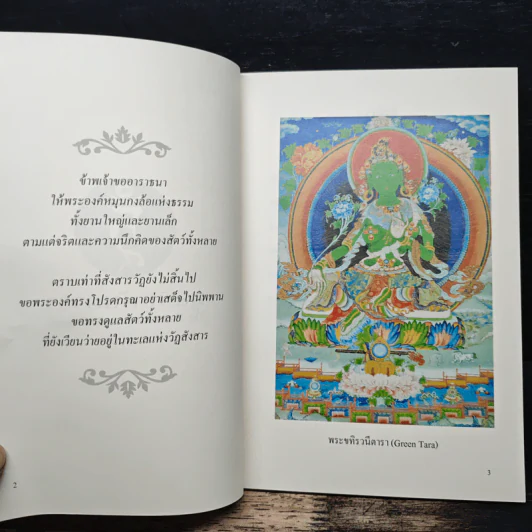 ข้าพเจ้าขออาราธนา
ให้พระองค์หมุนกงล้อแห่งธรรม
ทั้งยานใหญ่และยานเล็ก
ตามแต่จริตและความนึกคิดของสัตว์ทั้งหลาย
ตราบเท่าที่สังสารวัฏยังไม่สิ้นไป
ขอพระองค์ทรงโปรดกรุณาอย่าเสด็จไปนิพพาน
ขอทรงดูแลสัตว์ทั้งหลาย
ที่ยังเวียนว่ายอยู่ในทะเลแห่งวัฏสังสาร
2
พระขทิรวนีตารา (Green Tara)
3